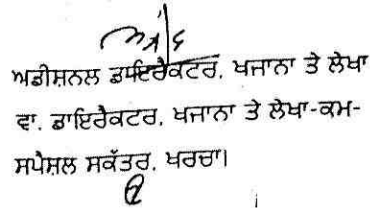 ਅਡੀਸ਼ਨਲ ਡਾਇਰੈਕਟਰ, ਖਜਾਨਾ ਤੇ ਲੇਖਾ
ਵਾ. ਡਾਇਰੈਕਟਰ, ਖਜਾਨਾ ਤੇ ਲੇਖਾ-ਕਮ-
ਸਪੈਸ਼ਲ ਸਕੱਤਰ, ਖਰਚਾ।